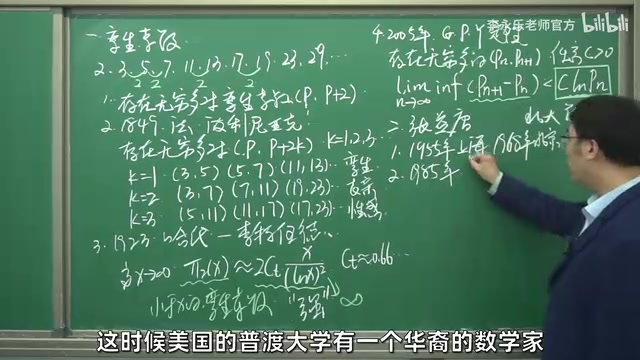 李永乐老师官方 bilibili
一. 孪生素数
2. 3. 5. 7. 11. 13. 17. 19. 23. 29. …
2 2 2 2
1. 存在无穷多对孪生素数(P, P+2)
2. 1849. 法. 波利尼亚克
存在无穷多对(P, P+2k) k=1.2.3…
k=1 (3,5) (5,7) (11,13)… 孪生
k=2 (3,7) (7,11) (19,23)… 表亲
k=3 (5,11) (11,17) (17,23)… 性感
3. 1923. 哈代—李特伍德.
当x→∞ π₂(x)≈2Ct x/(lnx)² Ct≈0.66…
小于x的孪生素数 "强" ∞
4. 2005年. G. P. Y
存在无穷多对(Pn, Pn+1) 任意C>0
lim inf (Pn+1-Pn) < C ln Pn
n→∞
二. 张益唐
1. 1955年上海 1968年北京
2. 1985年
这时候美国的普渡大学有一个华裔的数学家